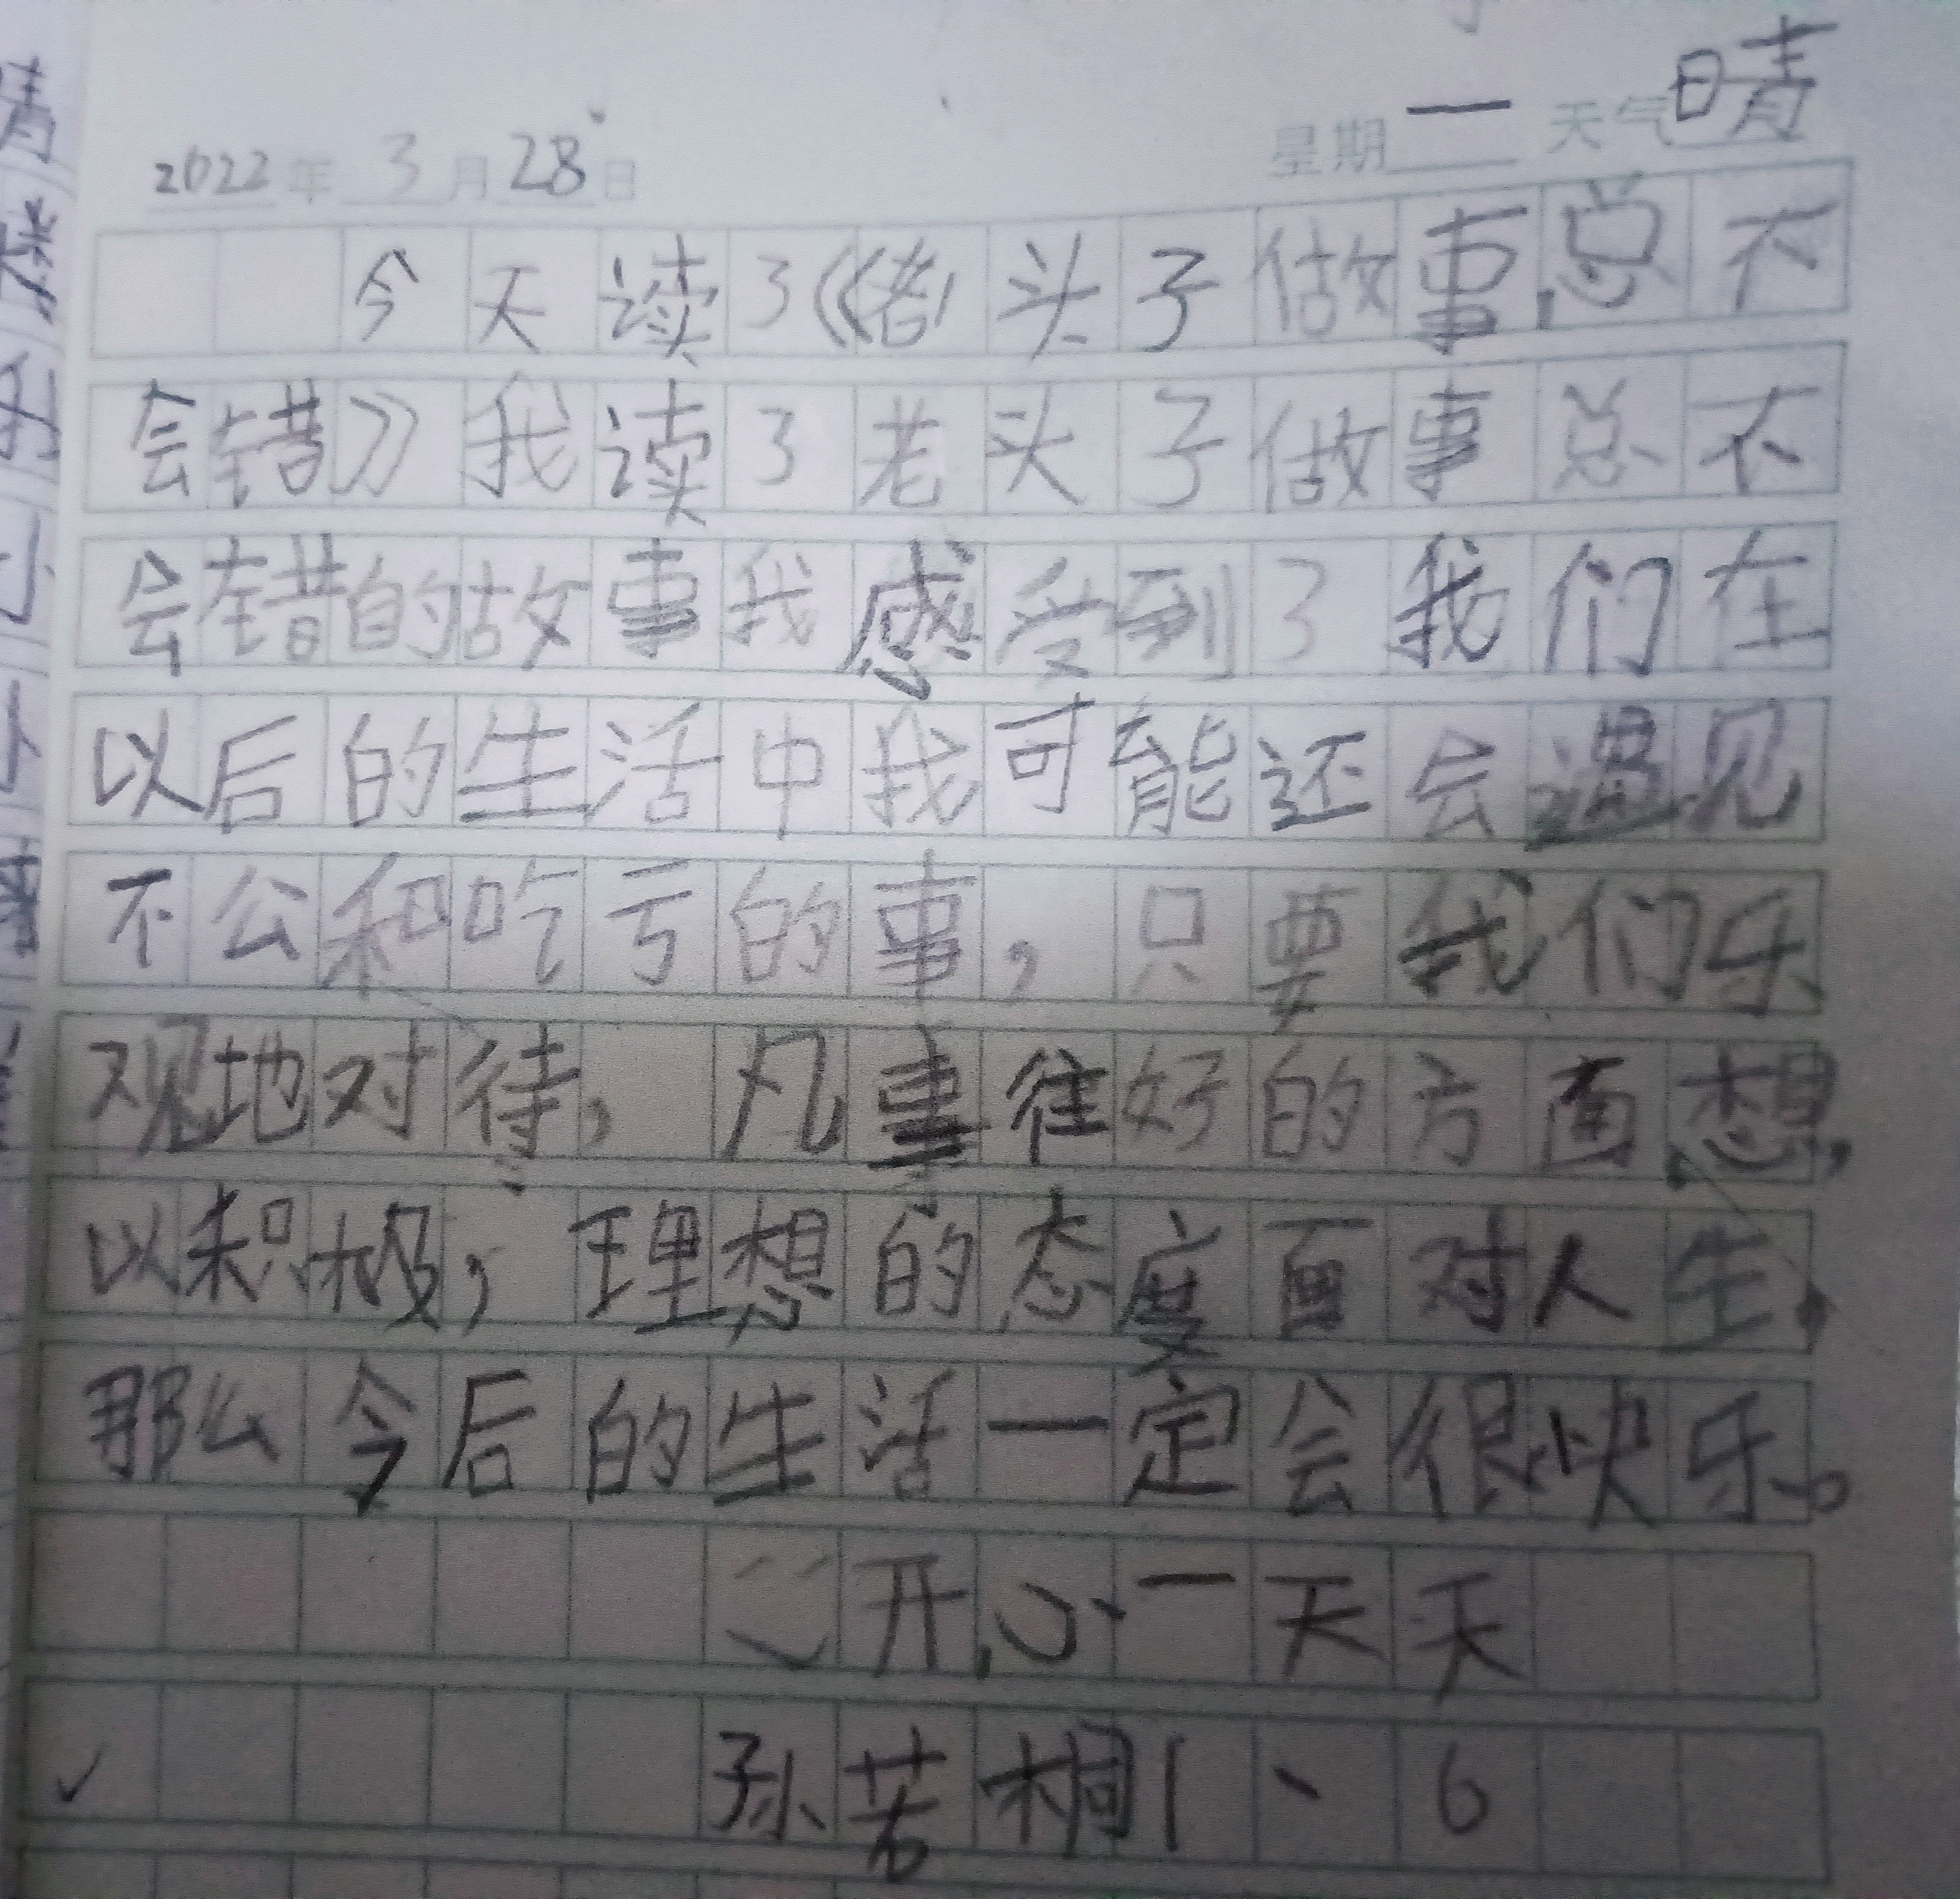 2022年3月28日 星期一 天气晴
今天读了《老头子做事,总不
会错》我读了老头子做事总不
会错的故事我感受到了我们在
以后的生活中我可能还会遇见
不公和吃亏的事,只要我们乐
观地对待,凡事往好的方面想,
以积极,理想的态度面对人生,
那么今后的生活一定会很快乐。
开心一天天
孙若桐1、6